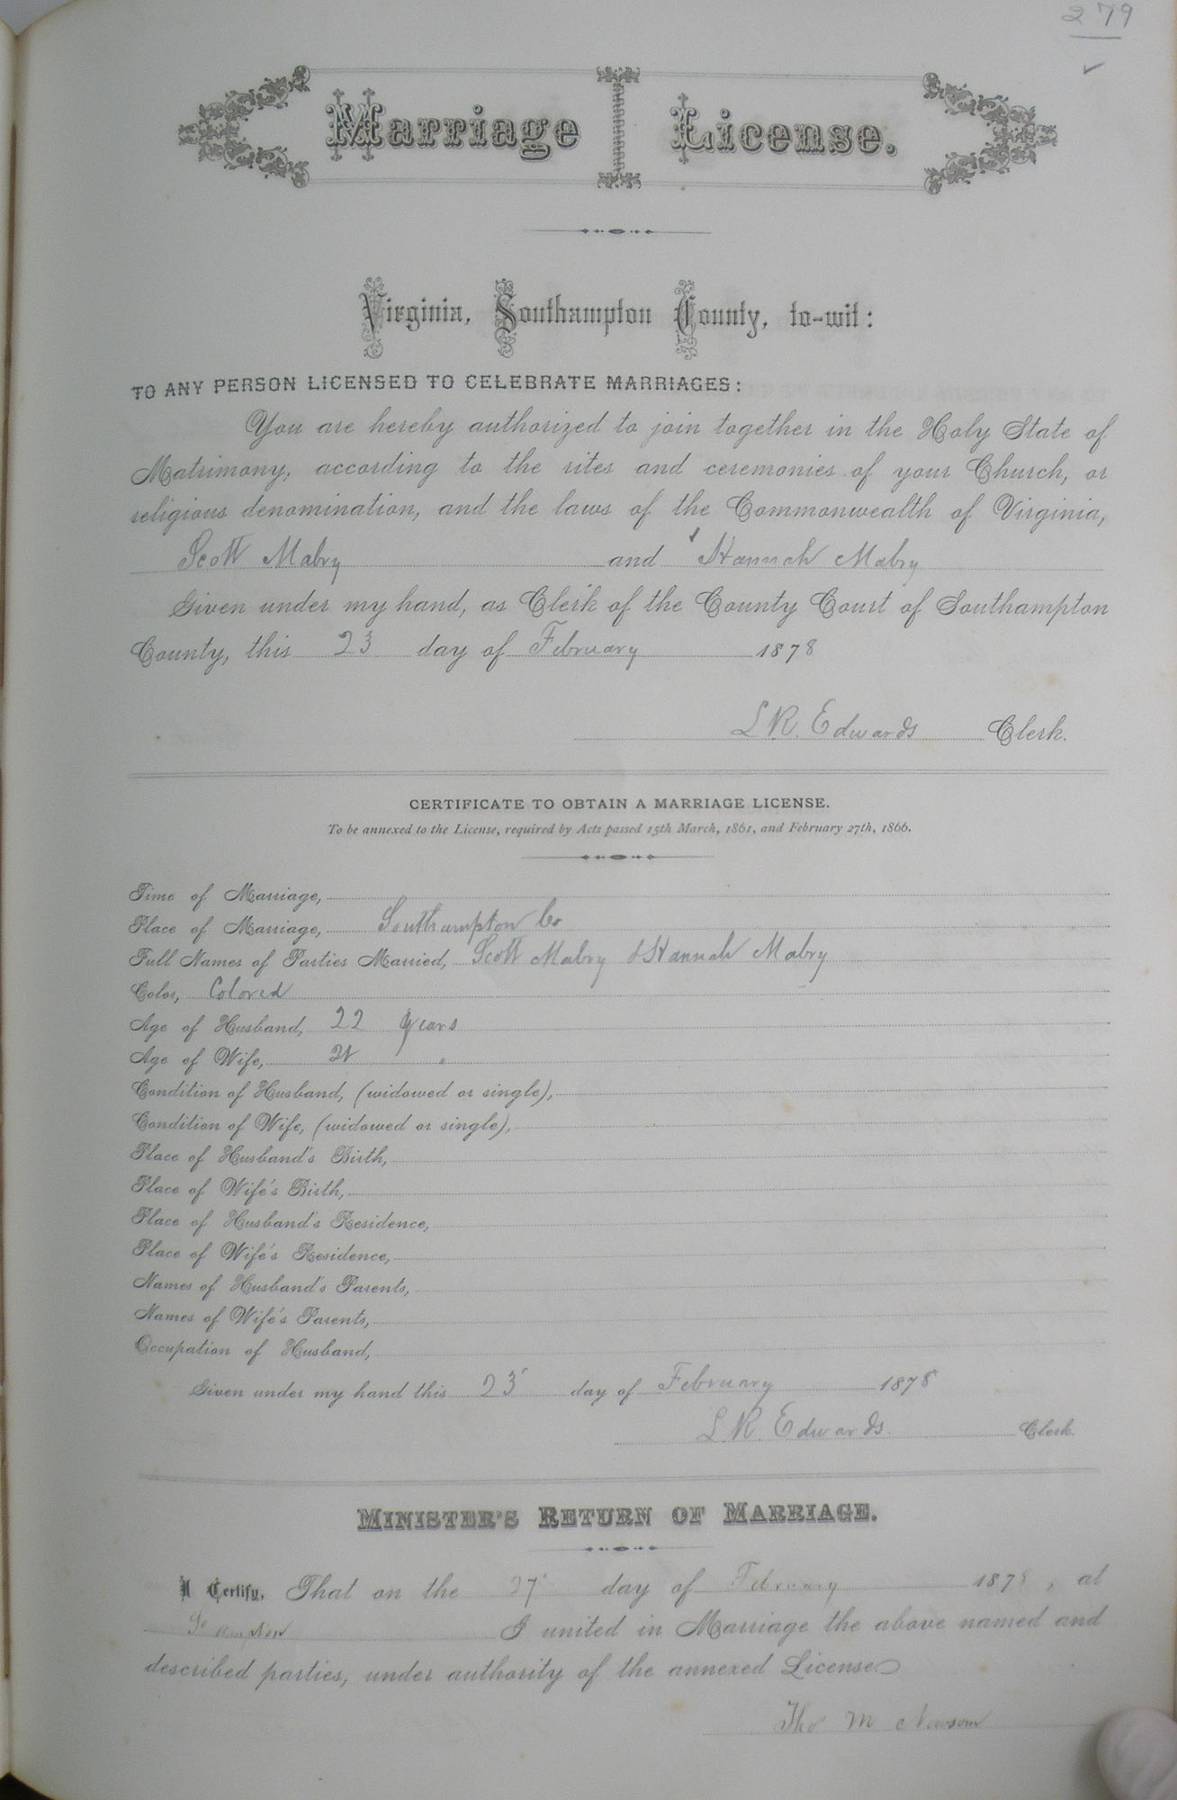 279
Marriage License.
Virginia, Southampton County, to-wit:
TO ANY PERSON LICENSED TO CELEBRATE MARRIAGES:
You are hereby authorized to join together in the Holy State of
Matrimony, according to the rites and ceremonies of your Church, or
religious denomination, and the laws of the Commonwealth of Virginia,
Scott Mabry and Hannah Mabry
Given under my hand, as Clerk of the County Court of Southampton
County, this 23 day of February 1878
L R. Edwards Clerk.
CERTIFICATE TO OBTAIN A MARRIAGE LICENSE.
To be annexed to the License, required by Acts passed 15th March, 1861, and February 27th, 1866.
Time of Marriage,
Place of Marriage, Southampton Co
Full Names of Parties Married, Scott Mabry & Hannah Mabry
Color, Colored
Age of Husband, 22 years
Age of Wife, 21 "
Condition of Husband, (widowed or single),
Condition of Wife, (widowed or single),
Place of Husband's Birth,
Place of Wife's Birth,
Place of Husband's Residence,
Place of Wife's Residence,
Names of Husband's Parents,
Names of Wife's Parents,
Occupation of Husband,
Given under my hand this 23 day of February 1878
L. R. Edwards Clerk.
MINISTER'S RETURN OF MARRIAGE.
I Certify, That on the 27 day of February 1878, at
I united in Marriage the above named and
described parties, under authority of the annexed License
Tho M Newsom